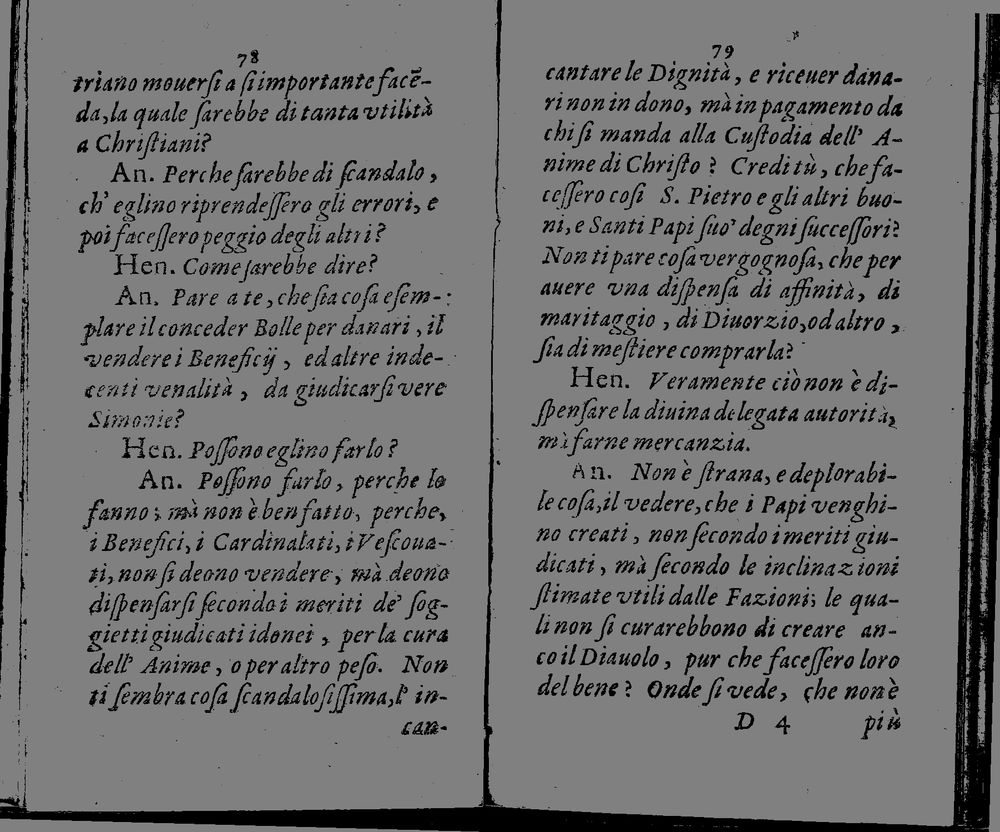 78
triano mouerſi a ſi importante facẽ-
da, la quale ſarebbe di tanta vtilità
a Chriſtiani?
An. Perche ſarebbe di ſcandalo,
ch' eglino riprendeſſero gli errori, e
poi faceſſero peggio degli altri?
Hen. Come ſarebbe dire?
An. Pare a te, che ſta coſa eſem-
plare il conceder Bolle per danari, il
vendere i Beneficij, ed altre inde-
centi venalità, da giudicarſi vere
Simonie?
Hen. Poſſono eglino farlo?
An. Poſſono farlo, perche lo
fanno; mà non è ben fatto, perche,
i Benefici, i Cardinalati, i Veſcoua-
ti, non ſi deono vendere, mà deono
diſpenſarſi ſecondo i meriti de' ſog-
gietti giudicati idonei, per la cura
dell' Anime, o per altro peſo. Non
ti ſembra coſa ſcandaloſiſſima, l' in-
can-
79
cantare le Dignità, e riceuer dana-
ri non in dono, mà in pagamento da
chi ſi manda alla Cuſtodia dell' A-
nime di Chriſto? Credi tù, che fa-
ceſſero coſi S. Pietro e gli altri buo-
ni, e Santi Papi ſuo' degni ſucceſſori?
Non ti pare coſa vergognoſa, che per
auere vna diſpenſa di affinità, di
maritaggio, di Diuorzio, od altro,
ſia di meſtiere comprarla?
Hen. Veramente ciò non è di-
ſpenſare la diuina delegata autorità,
mà farne mercanzia.
An. Non è ſtrana, e deplorabi-
le coſa, il vedere, che i Papi venghi-
no creati, non ſecondo i meriti giu-
dicati, mà ſecondo le inclinazioni
ſtimate vtili dalle Fazioni; le qua-
li non ſi curarebbono di creare an-
co il Diauolo, pur che faceſſero loro
del bene? Onde ſi vede, che non è
D 4 più